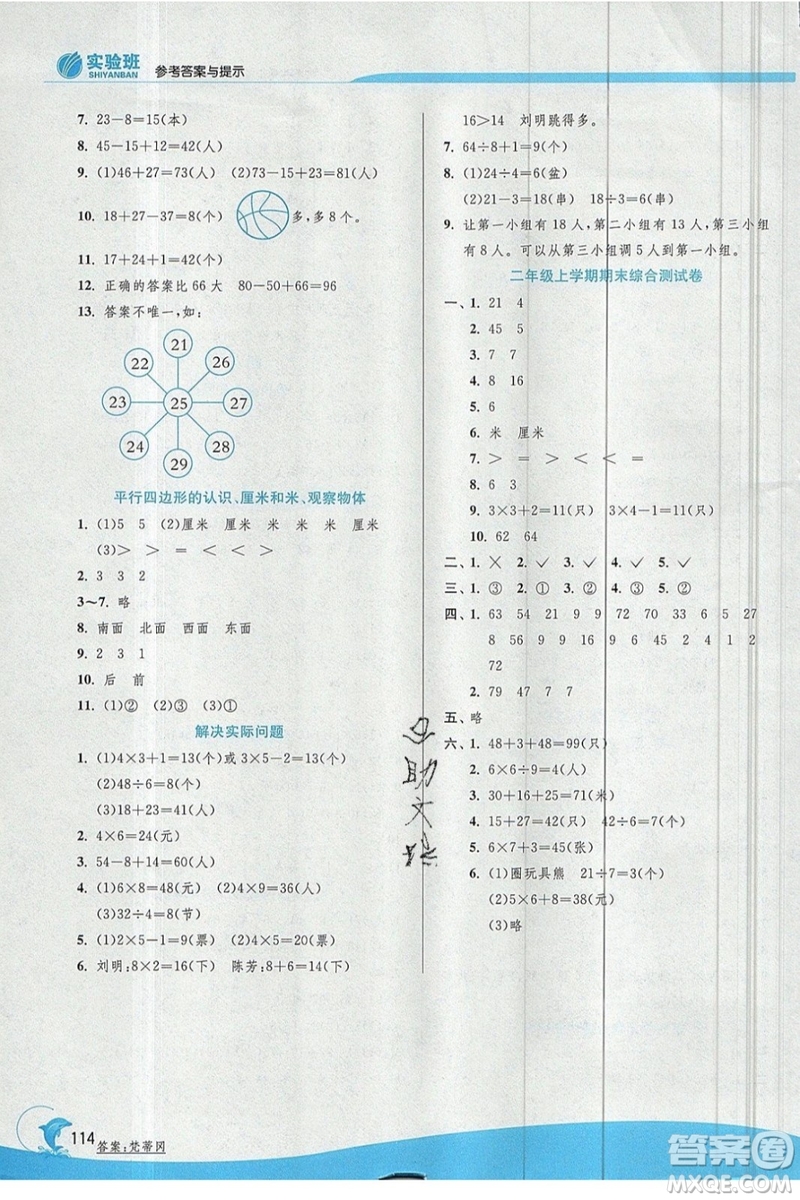 实验班
SHIYANBAN
参考答案与提示
7. 23－8＝15(本)
8. 45－15＋12＝42(人)
9. (1)46＋27＝73(人)　(2)73－15＋23＝81(人)
10. 18＋27－37＝8(个)　多,多 8 个。
11. 17＋24＋1＝42(个)
12. 正确的答案比 66 大　80－50＋96＝126
13. 答案不唯一,如:
21
22　26
23　25　27
24　28
29
平行四边形的认识、厘米和米、观察物体
1. (1)5　5　(2)厘米　厘米　米　米　米　厘米
(3)＞　＞　＝　＜　＜　＞
2. 3　3　2
3～7. 略
8. 南面　北面　西面　东面
9. 2　3　1
10. 后　前
11. (1)②　(2)③　(3)①
解决实际问题
1. (1)4×3＋1＝13(个)或 3×5－2＝13(个)
(2)48÷6＝8(个)
(3)18＋23＝41(人)
2. 4×6＝24(元)
3. 54－8＋14＝60(人)
4. (1)6×8＝48(元)　(2)4×9＝36(人)
(3)32÷4＝8(节)
5. (1)2×5－1＝9(票)　(2)2＋9＝11(票)
6. 刘明:8×2＝16(下)　陈芳:8＋6＝14(下)
16＞14　刘明跳得多。
7. 64÷8＋1＝9(个)
8. (1)24÷4＝6(盆)
(2)21－3＝18(串)　18÷3＝6(串)
9. 让第一小组有 18 人,第二小组有 13 人,第三小组
有 8 人。可以从第三小组调 5 人到第一小组。
二年级上学期期末综合测试卷
一、1. 21　4
2. 45　5
3. 7　7
4. 8　16
5. 6
6. 米　厘米
7. ＞　＝　＞　＜　＜　＝
8. 6　3
9. 3×3＋2＝11(只)　3×4－1＝11(只)
10. 62　64
二、1. ×　2. ✓　3. ✓　4. ✓　5. ✓
三、1. ③　2. ①　3. ②　4. ③　5. ②
四、1. 63　54　21　9　9　72　70　6　5　27
8　56　9　9　16　9　45　4　1　2
72
2. 79　17　48　7　27　7
五、略
六、1. 48＋3＋48＝99(只)
2. 6×6－9＝27(人)
3. 30＋16＋25＝71(米)
4. 15＋27＝42(只)　42÷6＝7(只)
5. 6×7＋3＝45(张)
6. (1)圈玩具熊　21÷7＝3(个)
(2)5×6＋8＝38(元)
(3)略
114
答案:梵蒂冈
答案圈
MXQE.COM